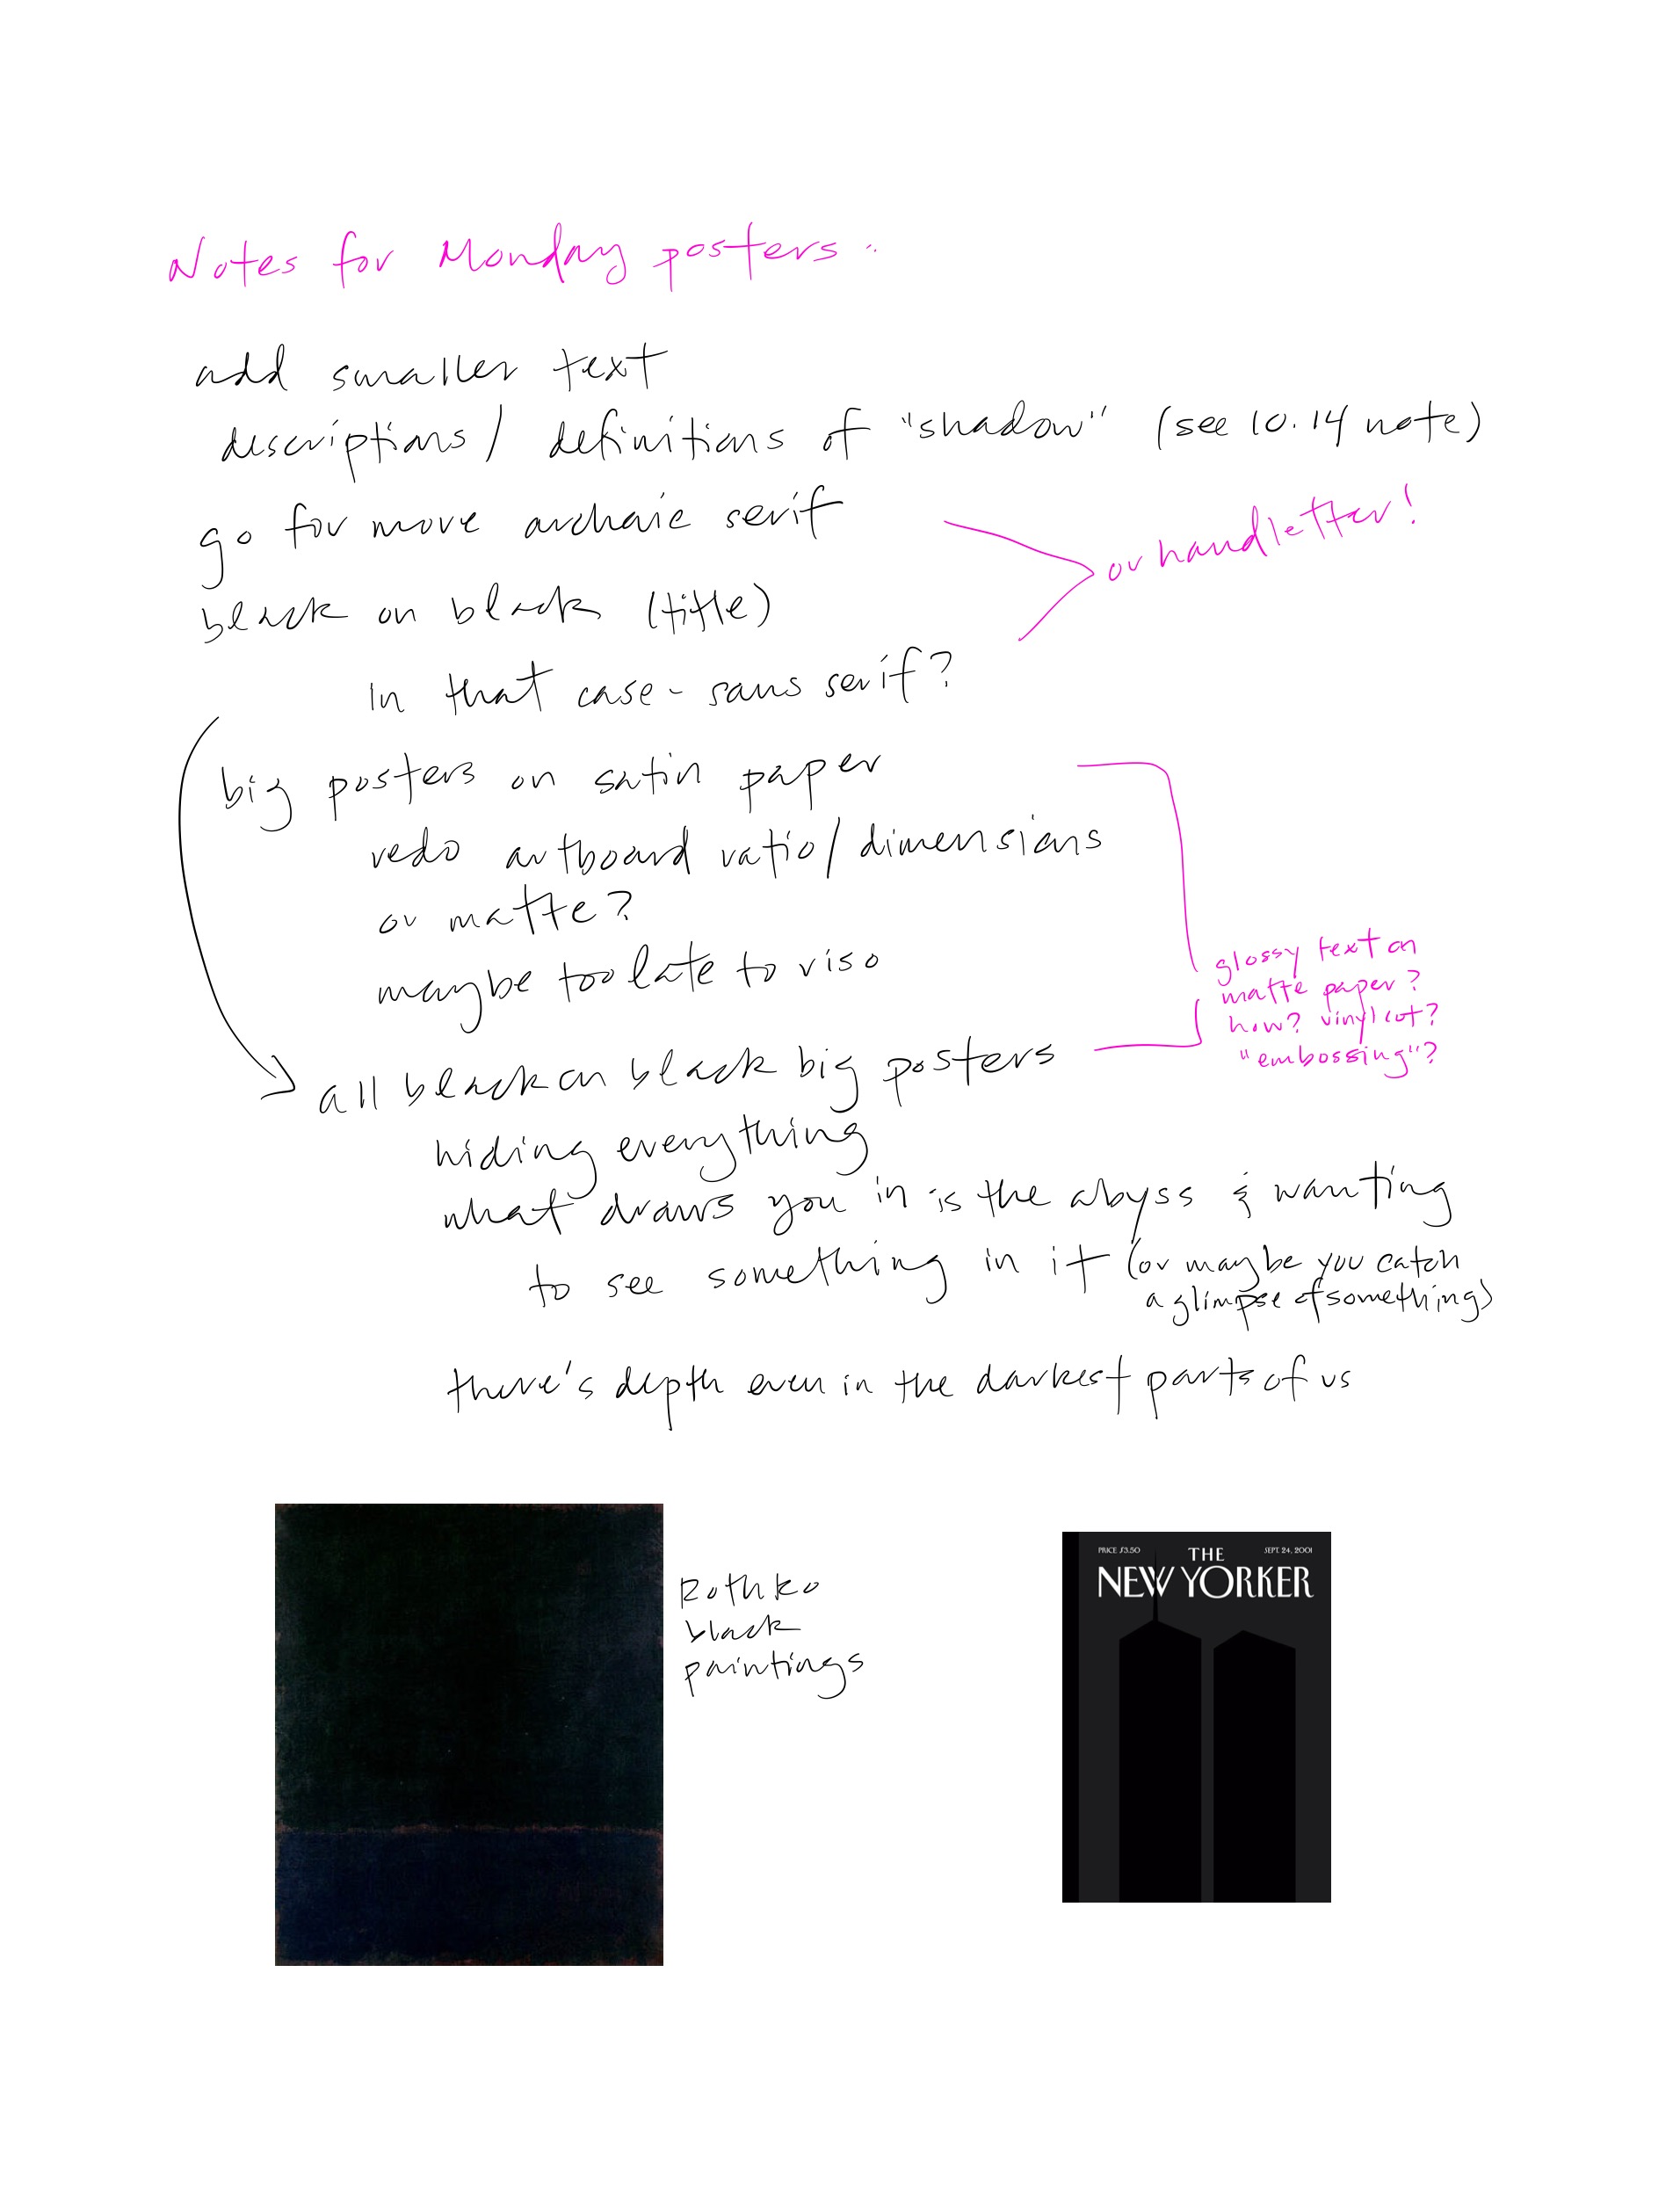 Notes for Monday posters:
add smaller text
descriptions / definitions of "shadow" (see 10.14 note)
go for more archaic serif
or handletter!
black on black (title)
in that case - sans serif?
big posters on satin paper
redo artboard ratio / dimensions
or matte?
maybe too late to riso
glossy text on
matte paper?
how? vinyl cut?
"embossing"?
all black on black big posters
hiding everything
what draws you in is the abyss & wanting
to see something in it (or maybe you catch
a glimpse of something)
there's depth even in the darkest parts of us
Rothko
black
paintings
PRICE $3.50 THE SEPT. 24, 2001
NEW YORKER